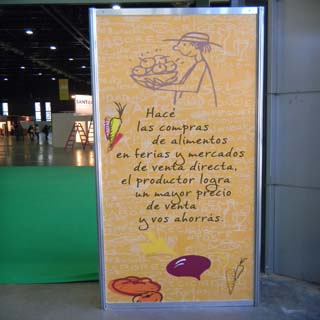 Hacé
las compras
de alimentos
en ferias y mercados
de venta directa,
el productor logra
un mayor precio
de venta
y vos ahorrás.